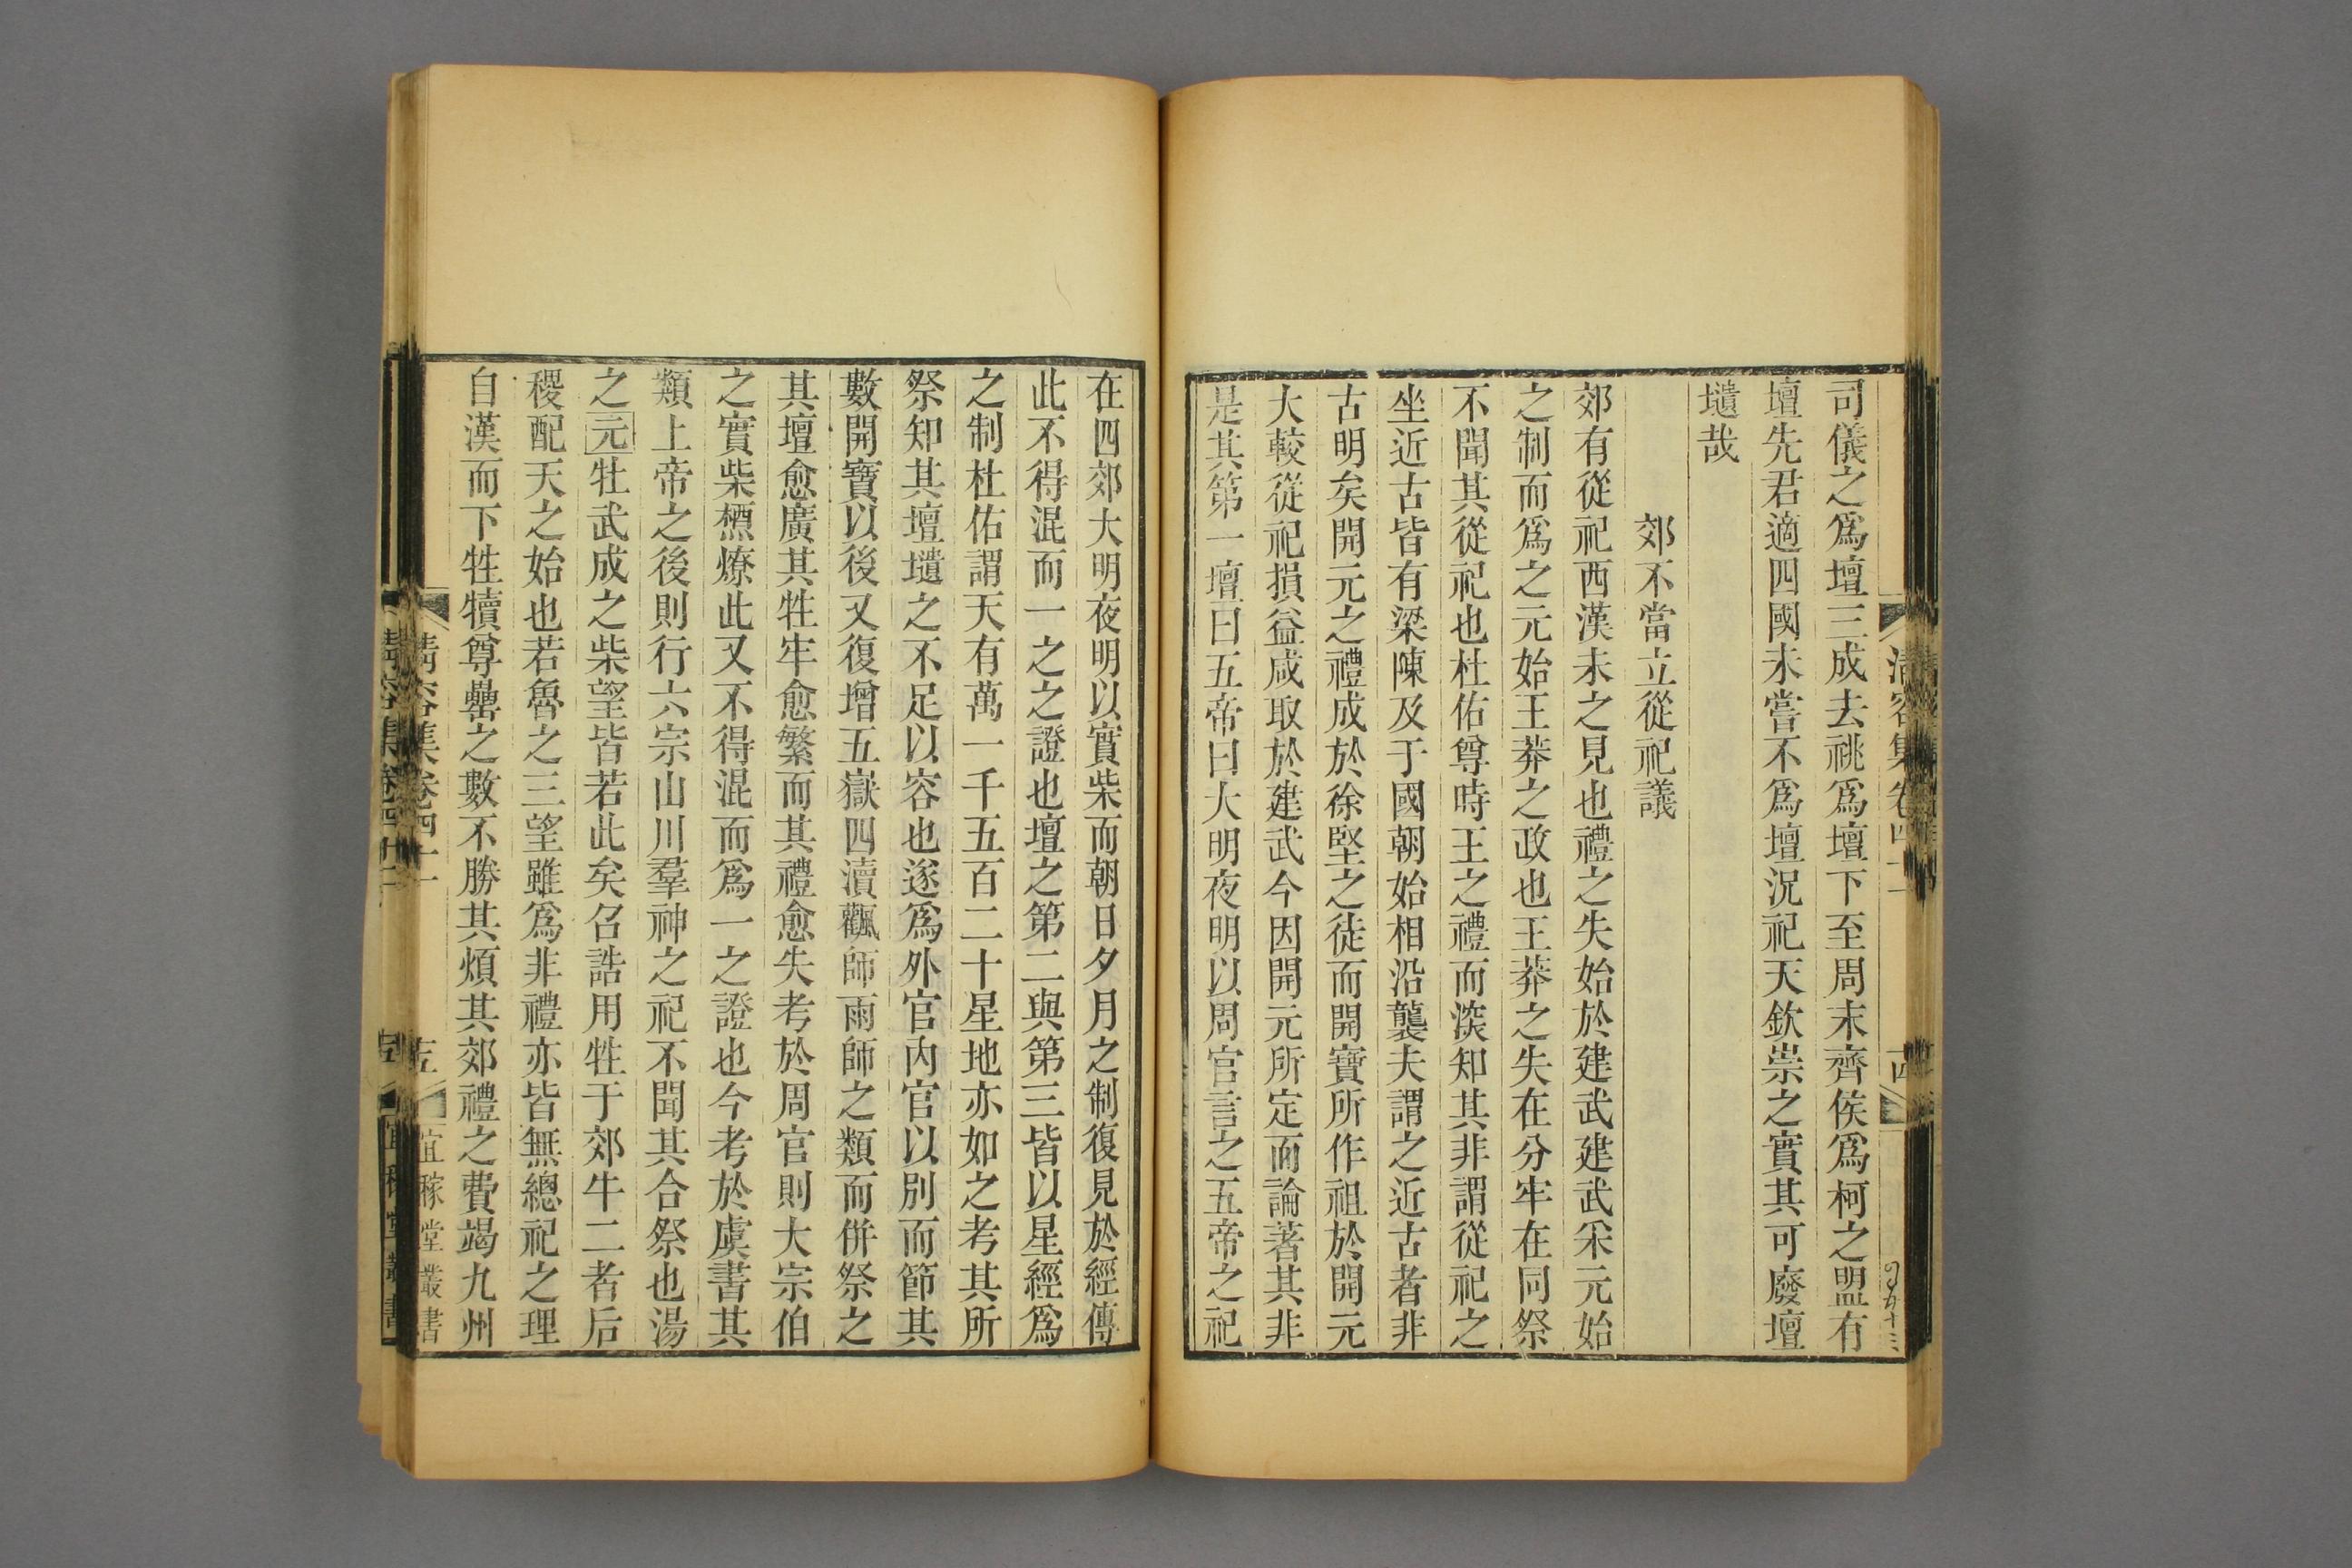 司儀之爲壇三成去祧爲壇下至周末齊侯爲柯之盟有
壇先君適四國未嘗不爲壇況祀天欽崇之實其可廢壇
壝哉
郊不當立從祀議
郊有從祀西漢未之見也禮之失始於建武建武采元始
之制而爲之元始王莽之政也王莽之失在分牢在同祭
不聞其從祀也杜佑尊時王之禮而深知其非謂從祀之
坐近古皆有梁陳及于國朝始相沿襲夫謂之近古者非
古明矣開元之禮成於徐堅之徒而開寶所作祖於開元
大較從祀損益咸取於建武今因開元所定而論著其非
是其第一壇曰五帝曰大明夜明以周官言之五帝之祀
在四郊大明夜明以實柴而朝日夕月之制復見於經傳
此不得混而一之之證也壇之第二與第三皆以星經爲
之制杜佑謂天有萬一千五百二十星地亦如之考其所
祭知其壇壝之不足以容也遂爲外官內官以別而節其
數開寶以後又復增五嶽四瀆飌師雨師之類而併祭之
其壇愈廣其牲牢愈繁而其禮愈失考於周官則大宗伯
之實柴槱燎此又不得混而爲一之證也今考於虞書其
類上帝之後則行六宗山川羣神之祀不聞其合祭也湯
之元牡武成之柴望皆若此矣召誥用牲于郊牛二者后
稷配天之始也若魯之三望雖爲非禮亦皆無總祀之理
自漢而下牲犢尊罍之數不勝其煩其郊禮之費竭九州
清容集卷四十一
宜稼堂叢書